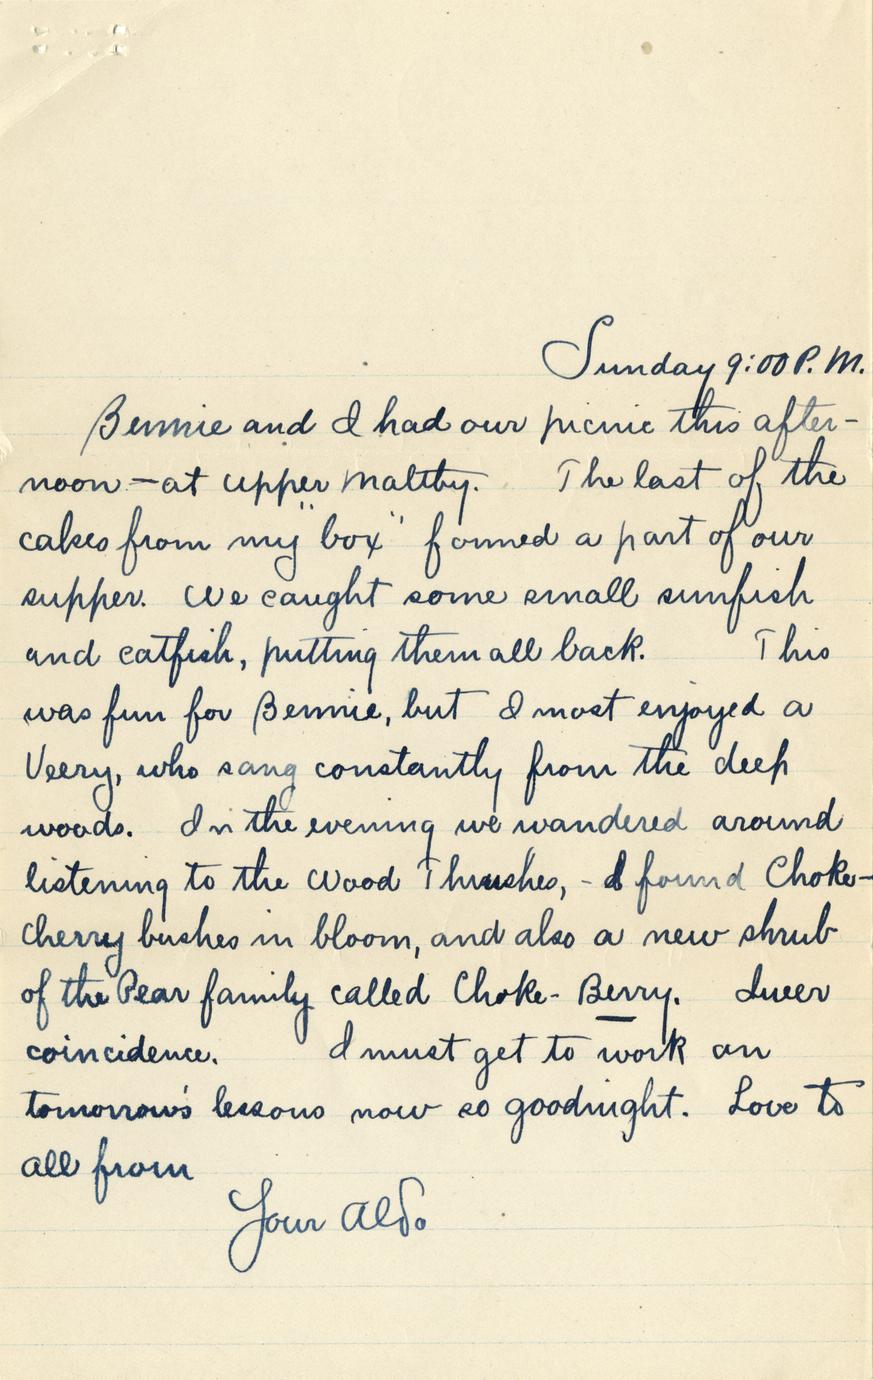 Sunday 9:00 P.M.
Bennie and I had our picnic this after-
noon - at upper Maltby. The last of the
cakes from my "box" formed a part of our
supper. We caught some small sunfish
and catfish, putting them all back. This
was fun for Bennie, but I most enjoyed a
Veery, who sang constantly from the deep
woods. In the evening we wandered around
listening to the Wood Thrushes, - I found Choke-
cherry bushes in bloom, and also a new shrub
of the Pear family called Choke-Berry. Queer
coincidence. I must get to work on
tomorrow's lessons now so goodnight. Love to
all from
Your Aldo